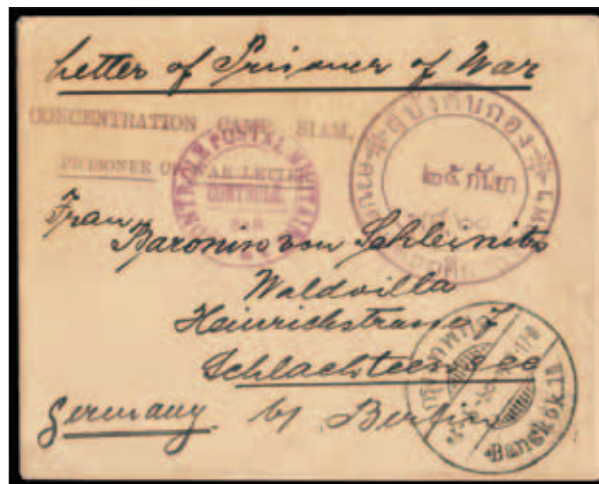 Letter of Prisoner of War
CONCENTRATION CAMP, SIAM.
PRISONER OF WAR LETTER
CONTROLE POSTAL MILITAIRE
CONTROLE
Frau
Baronin von Schleinitz
Waldvilla
Heinrichstrasse 7
Schlachtensee
Germany by Berlin
Bangkok